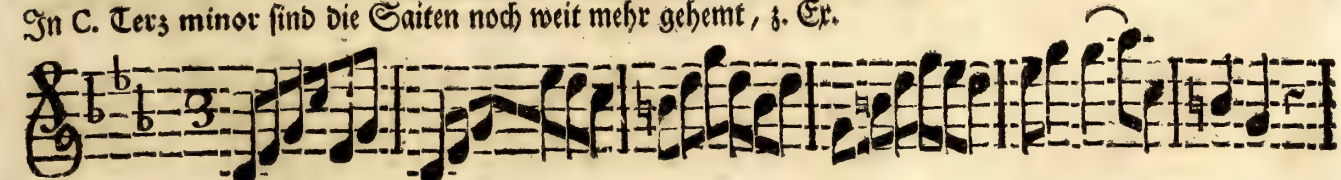 In C. Terz minor sind die Saiten noch weit mehr gehemt, z. Ex.
3